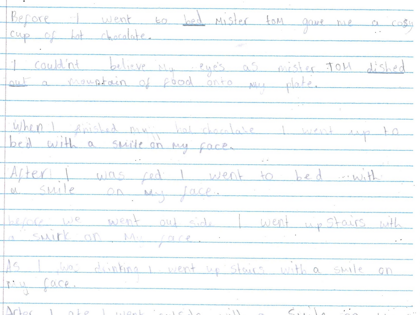 Before I went to bed Mister TOM gave me a cosy
cup of hot chocolate.
I couldn't believe my eyes as mister TOM dished
out a mountain of food onto my plate.
When I finished my hot chocolate I went up to
bed with a smile on my face.
After I was fed I went to bed with
a smile on my face.
before we went out side I went upstairs with
a smirk on My face.
As I was drinking I went up stairs with a smile on
My face.
After I ate I went with a smile